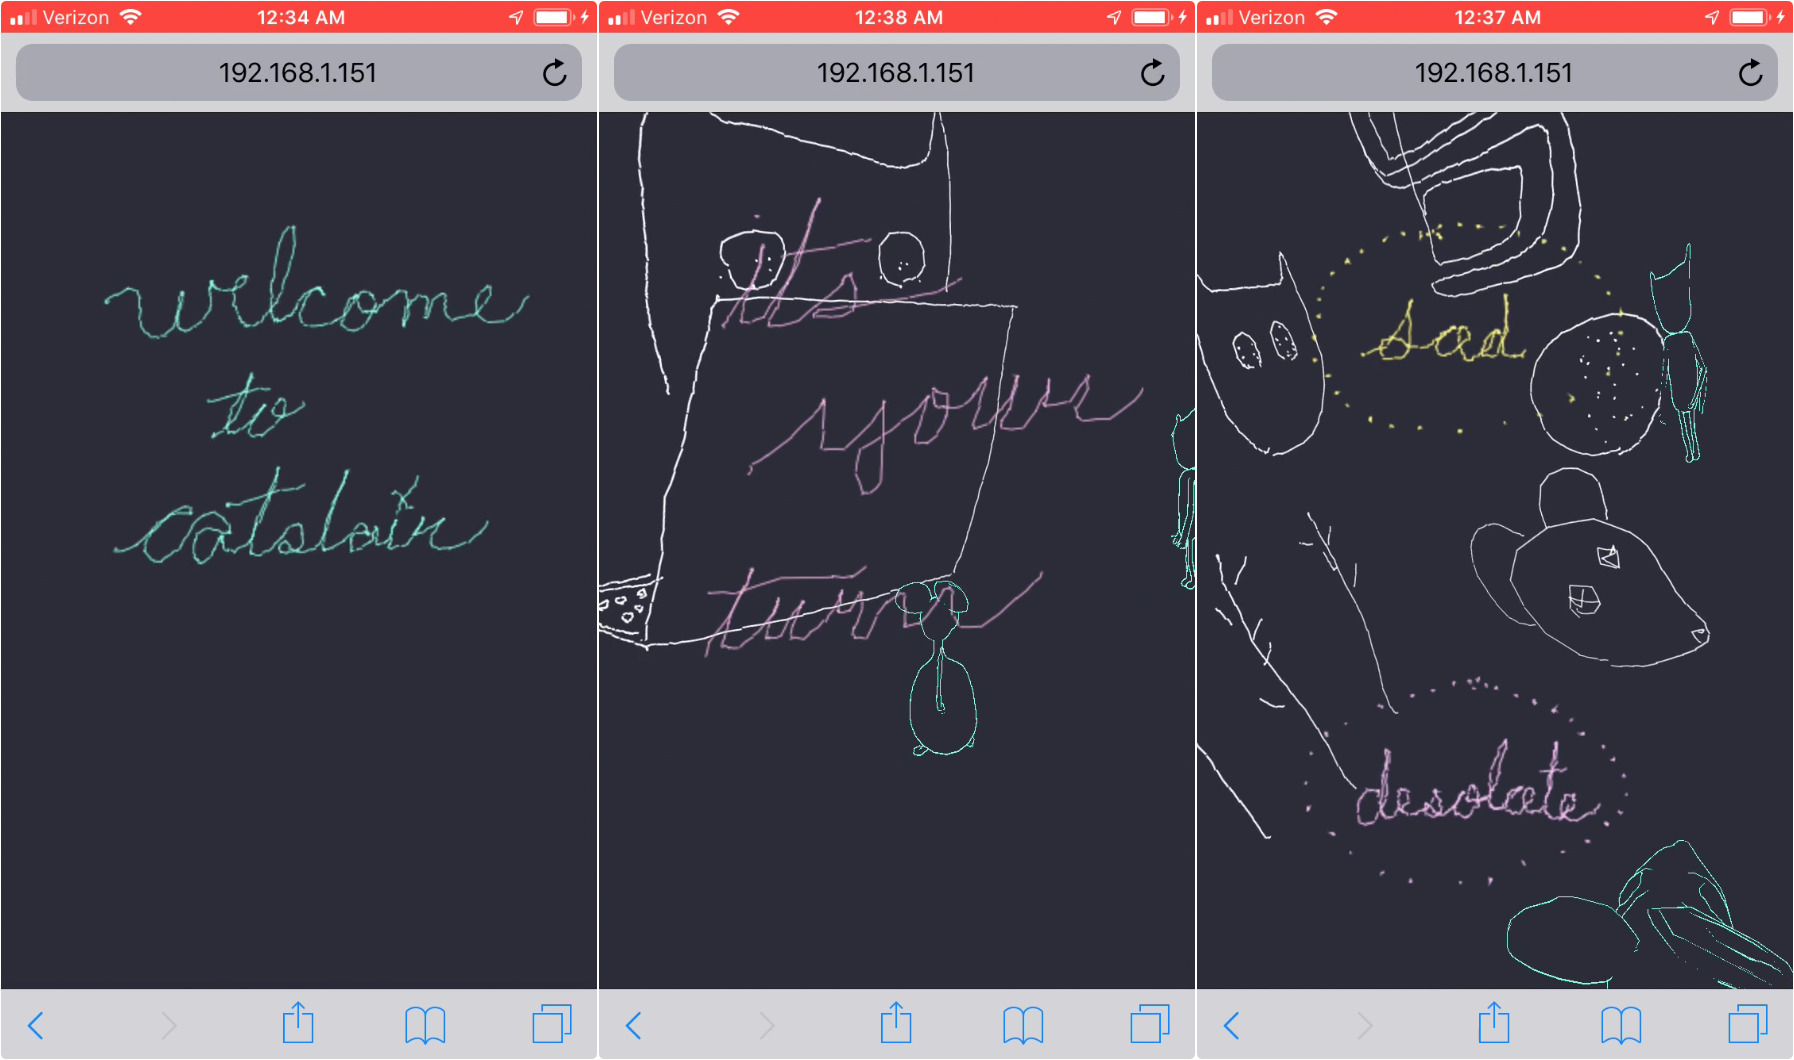 Verizon 12:34 AM
192.168.1.151
welcome
to
catslair
Verizon 12:38 AM
192.168.1.151
its
your
turn
Verizon 12:37 AM
192.168.1.151
sad
desolate